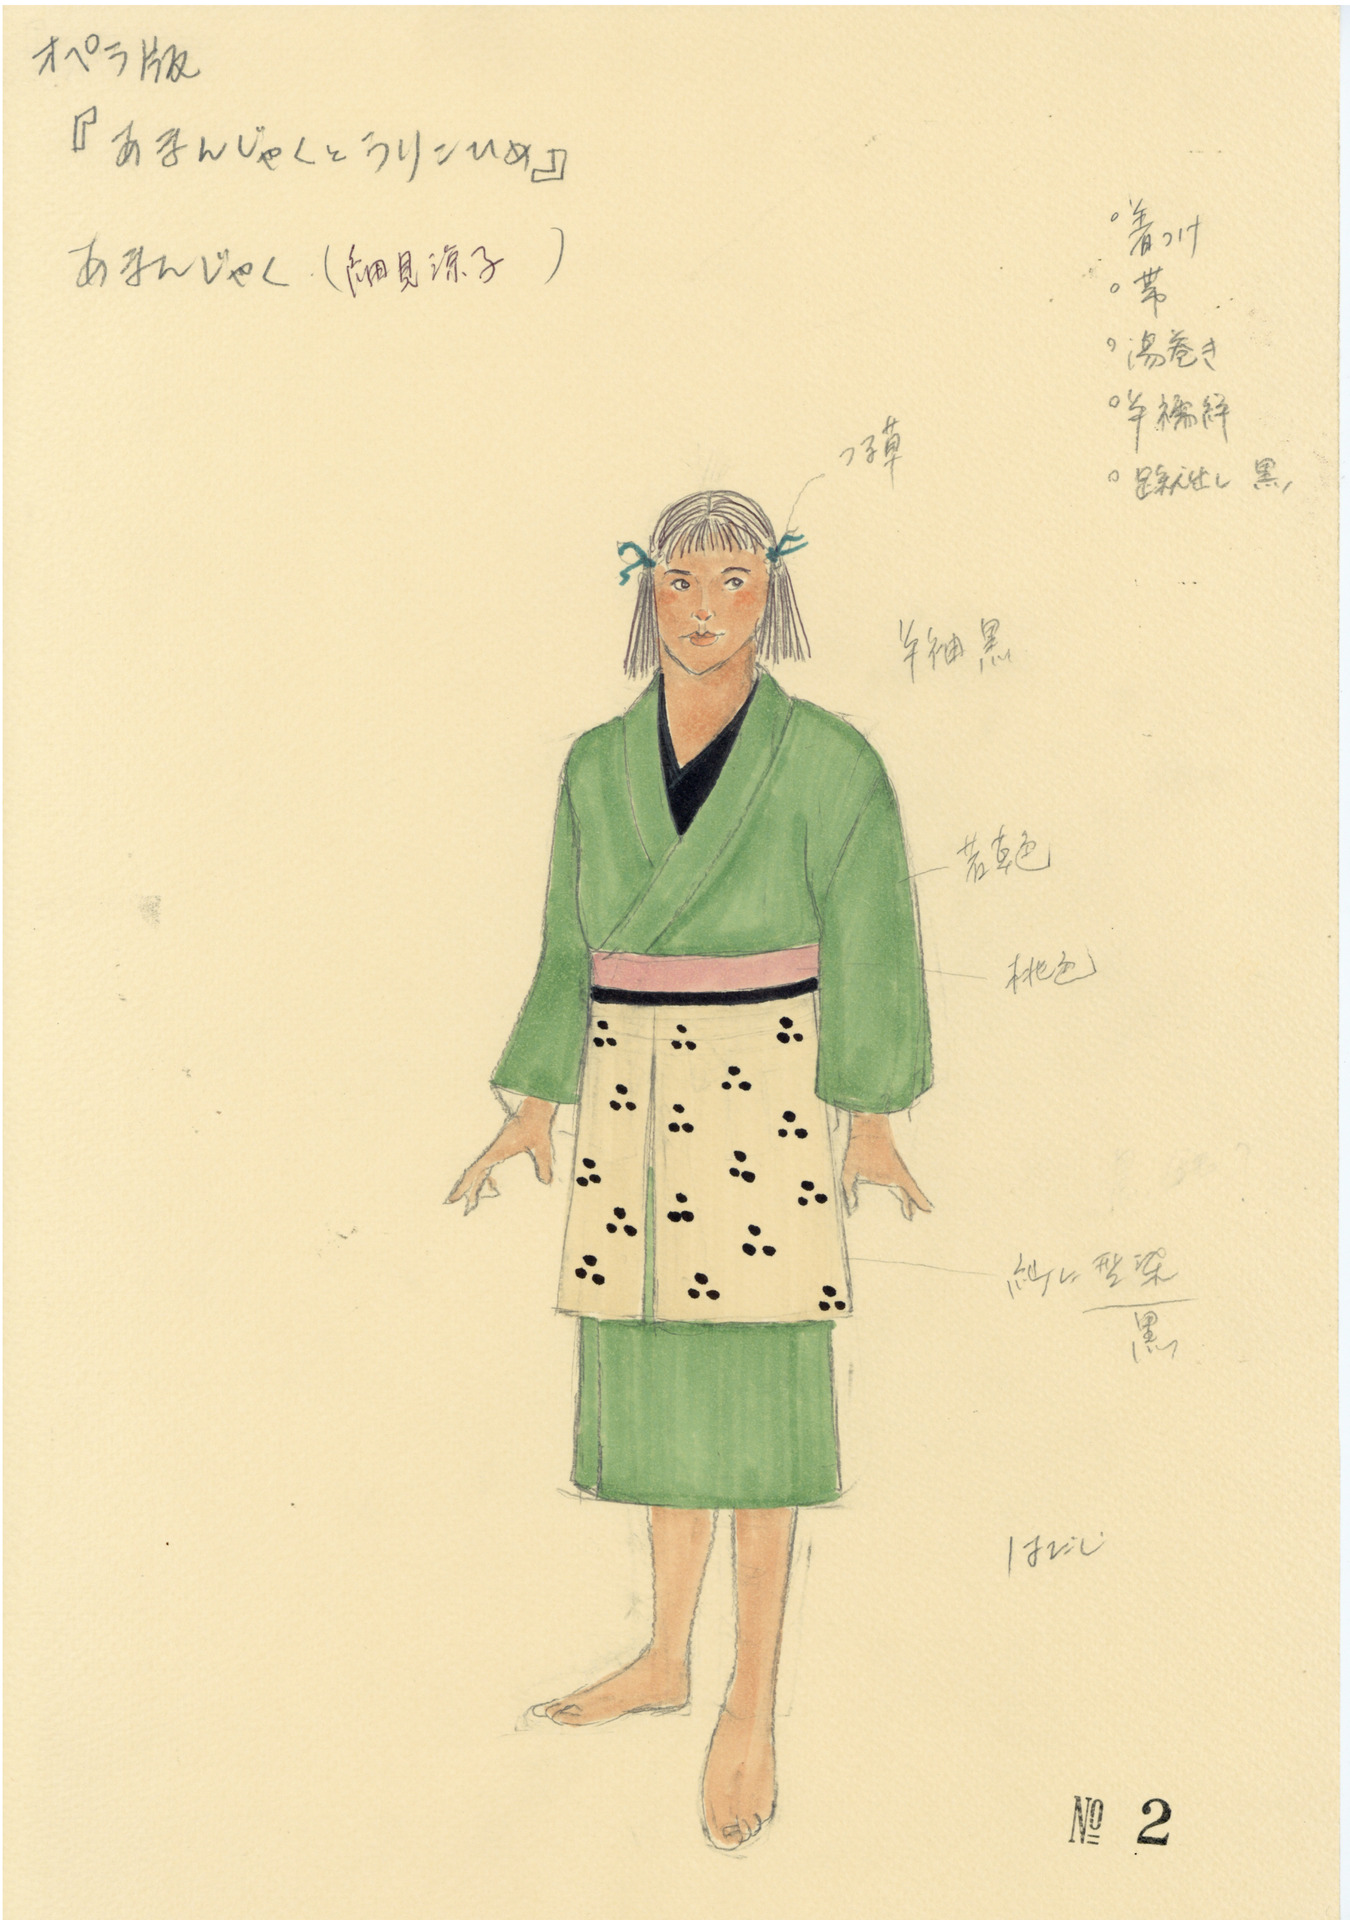 オペラ版
『あまんじゃくとうりこひめ』
あまんじゃく (細見涼子 )
。着つけ
。帯
。湯巻き
。半襦袢
。蹴出し 黒
半袖 黒
若草色
桃色
型染
黒
はだし
№ 2